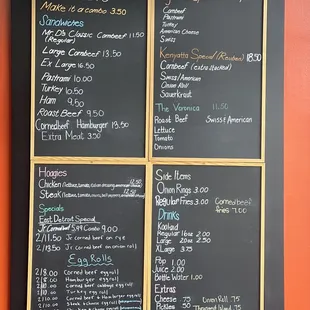 Make it a combo 3.50
Sandwiches
Mr. D's Classic Cornbeef 11.50
(Regular)
Large Cornbeef 13.50
Ex Large 16.50
Pastrami 10.00
Turkey 10.50
Ham 9.00
Roast Beef 9.50
Cornedbeef Hamburger 13.50
Extra Meat 3.50
Cornbeef
Pastrami
Turkey
American Cheese
Swiss
Kenyatta Special (Reuben) 18.50
Cornbeef (extra stacked)
Swiss/American
Onion Roll
Sauerkraut
The Veronica 11.50
Roast Beef Swiss/American
Lettuce
Tomato
Onions
Hoagies
Chicken 12.50
Steak 12.50
Specials
East Detroit Special
Jr. Corned 5.99 Combo 9.00
2/11.50 Jr corned beef on rye
2/13.50 Jr corned beef on onion roll
Egg Rolls
2/8.00 Corned beef egg roll
2/8.00 Hamburger eggroll
2/10.00 Corned beef cabbage egg roll
2/10.00 Turkey egg roll
2/10.00 Corned beef & Hamburger eggroll
Side Items
Onion Rings 3.00
Regular Fries 3.00
Corned beef
fries 7.00
Drinks
Koolaid
Regular 16oz 2.00
Large 20oz 2.50
XLarge 3.75
Pop 1.00
Juice 2.00
Bottle Water 1.00
Extras
Cheese .75 Onion Roll .75
Pickles Thousand Island .75